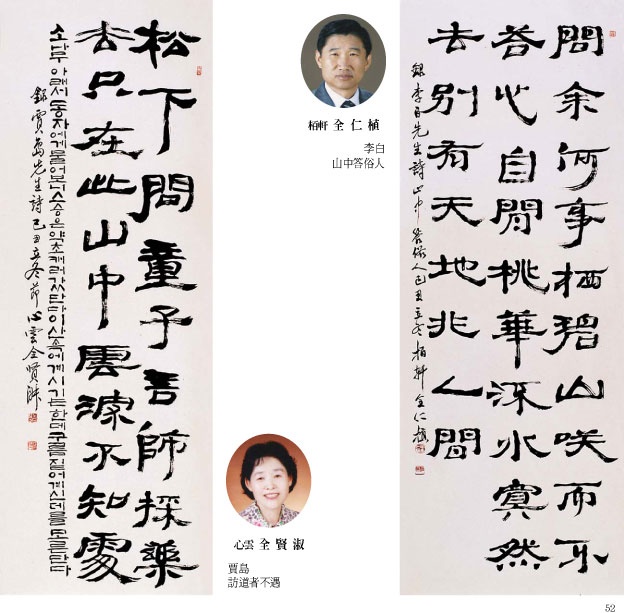 問余何事栖碧山咲而不
答心自閒桃華流水然
去別有天地非人間
錄李白先生詩山中答俗人己丑立冬栢軒全仁植
栢軒 全 仁 植
李白
山中答俗人
松下問童子言師採藥
去只在此山中雲深不知處
소나무 아래서 동자에게 물어보니 스승은 약초 캐러 갔단다 이 산속에 계시기는 한데 구름 짙어 계신데를 모른단다
錄賈島先生詩己丑立冬節心雲全賢淑
心雲 全 賢 淑
賈島
訪道者不遇
52